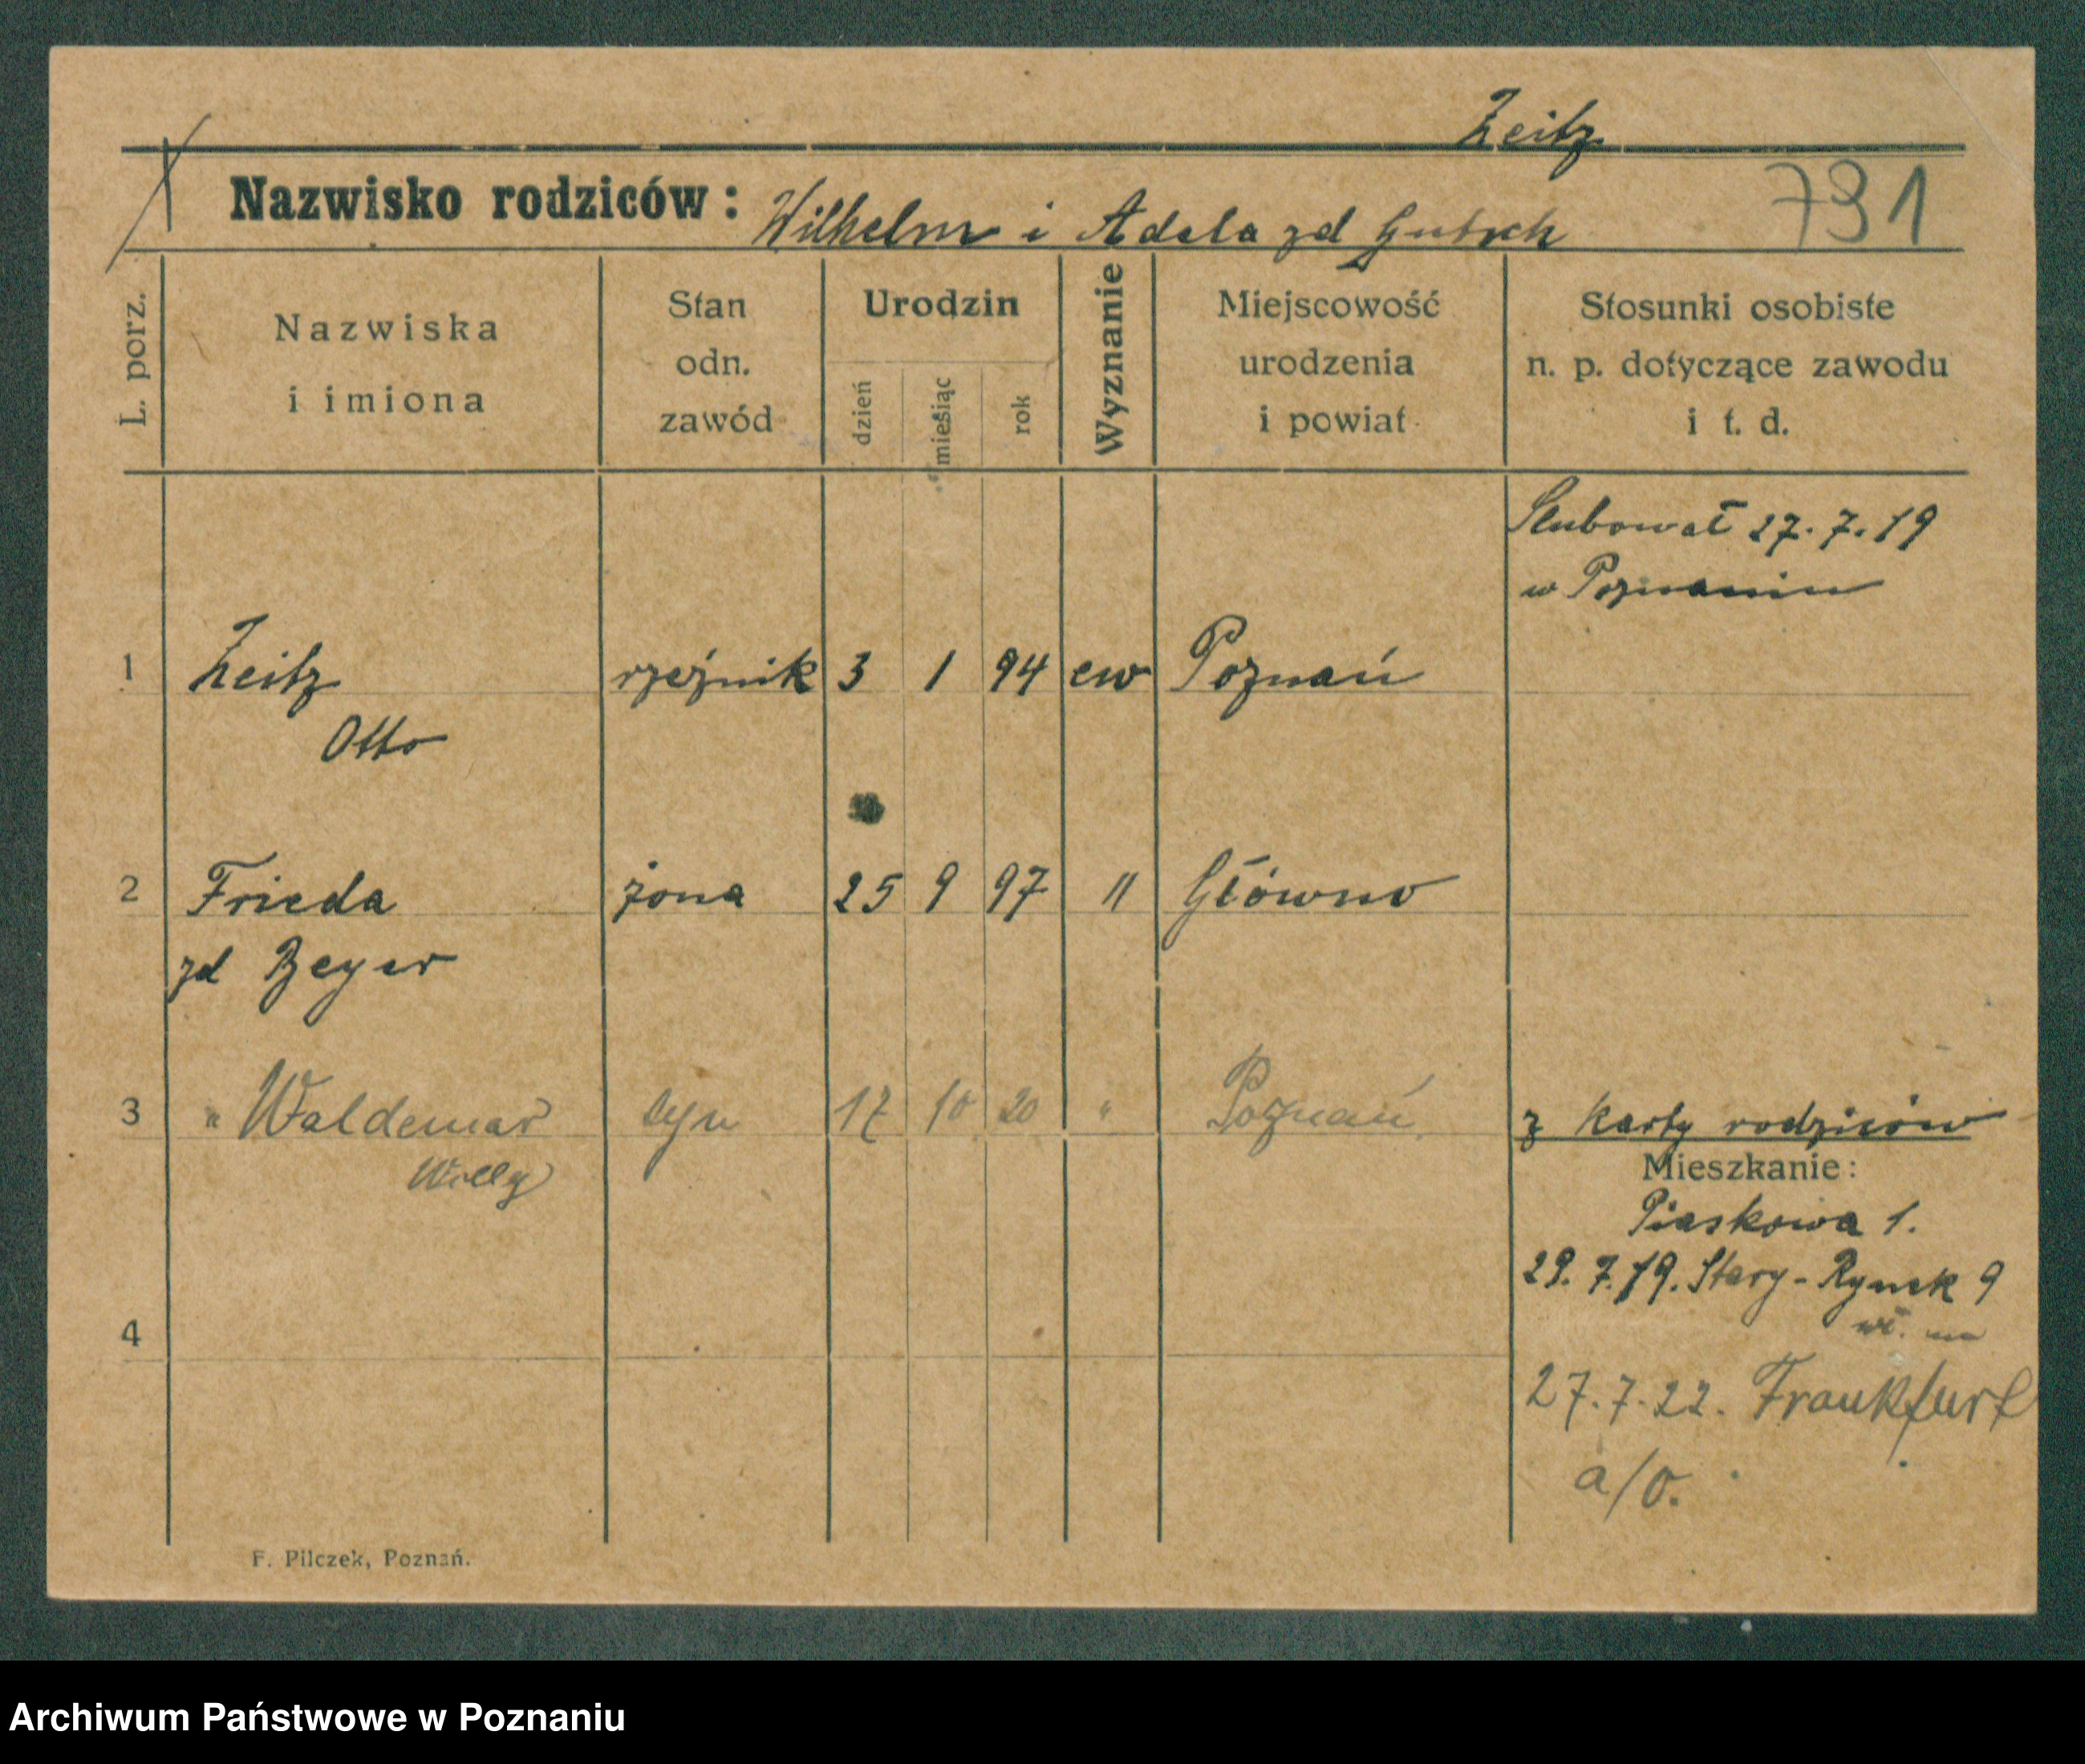 Zeitz
Nazwisko rodziców: Wilhelm i Adela zd Gutsch
731
L. porz.
Nazwiska
i imiona
Stan
odn.
zawód
Urodzin
dzień
miesiąc
rok
Wyznanie
Miejscowość
urodzenia
i powiat
Stosunki osobiste
n. p. dotyczące zawodu
i t. d.
Slubował 27.7.19
w Poznaniu
1 Zeitz rzeźnik 3 1 94 ew Poznań
Otto
2 Frieda żona 25 9 97 " Główno
zd Beyer
3 " Waldemar syn 17 10 20 " Poznań
Willy
z karty rodziców
Mieszkanie:
Piaskowa 1.
29.7.19. Stary-Rynek 9
4
27.7.22. Frankfurt
a/O.
F. Pilczek, Poznań.
Archiwum Państwowe w Poznaniu